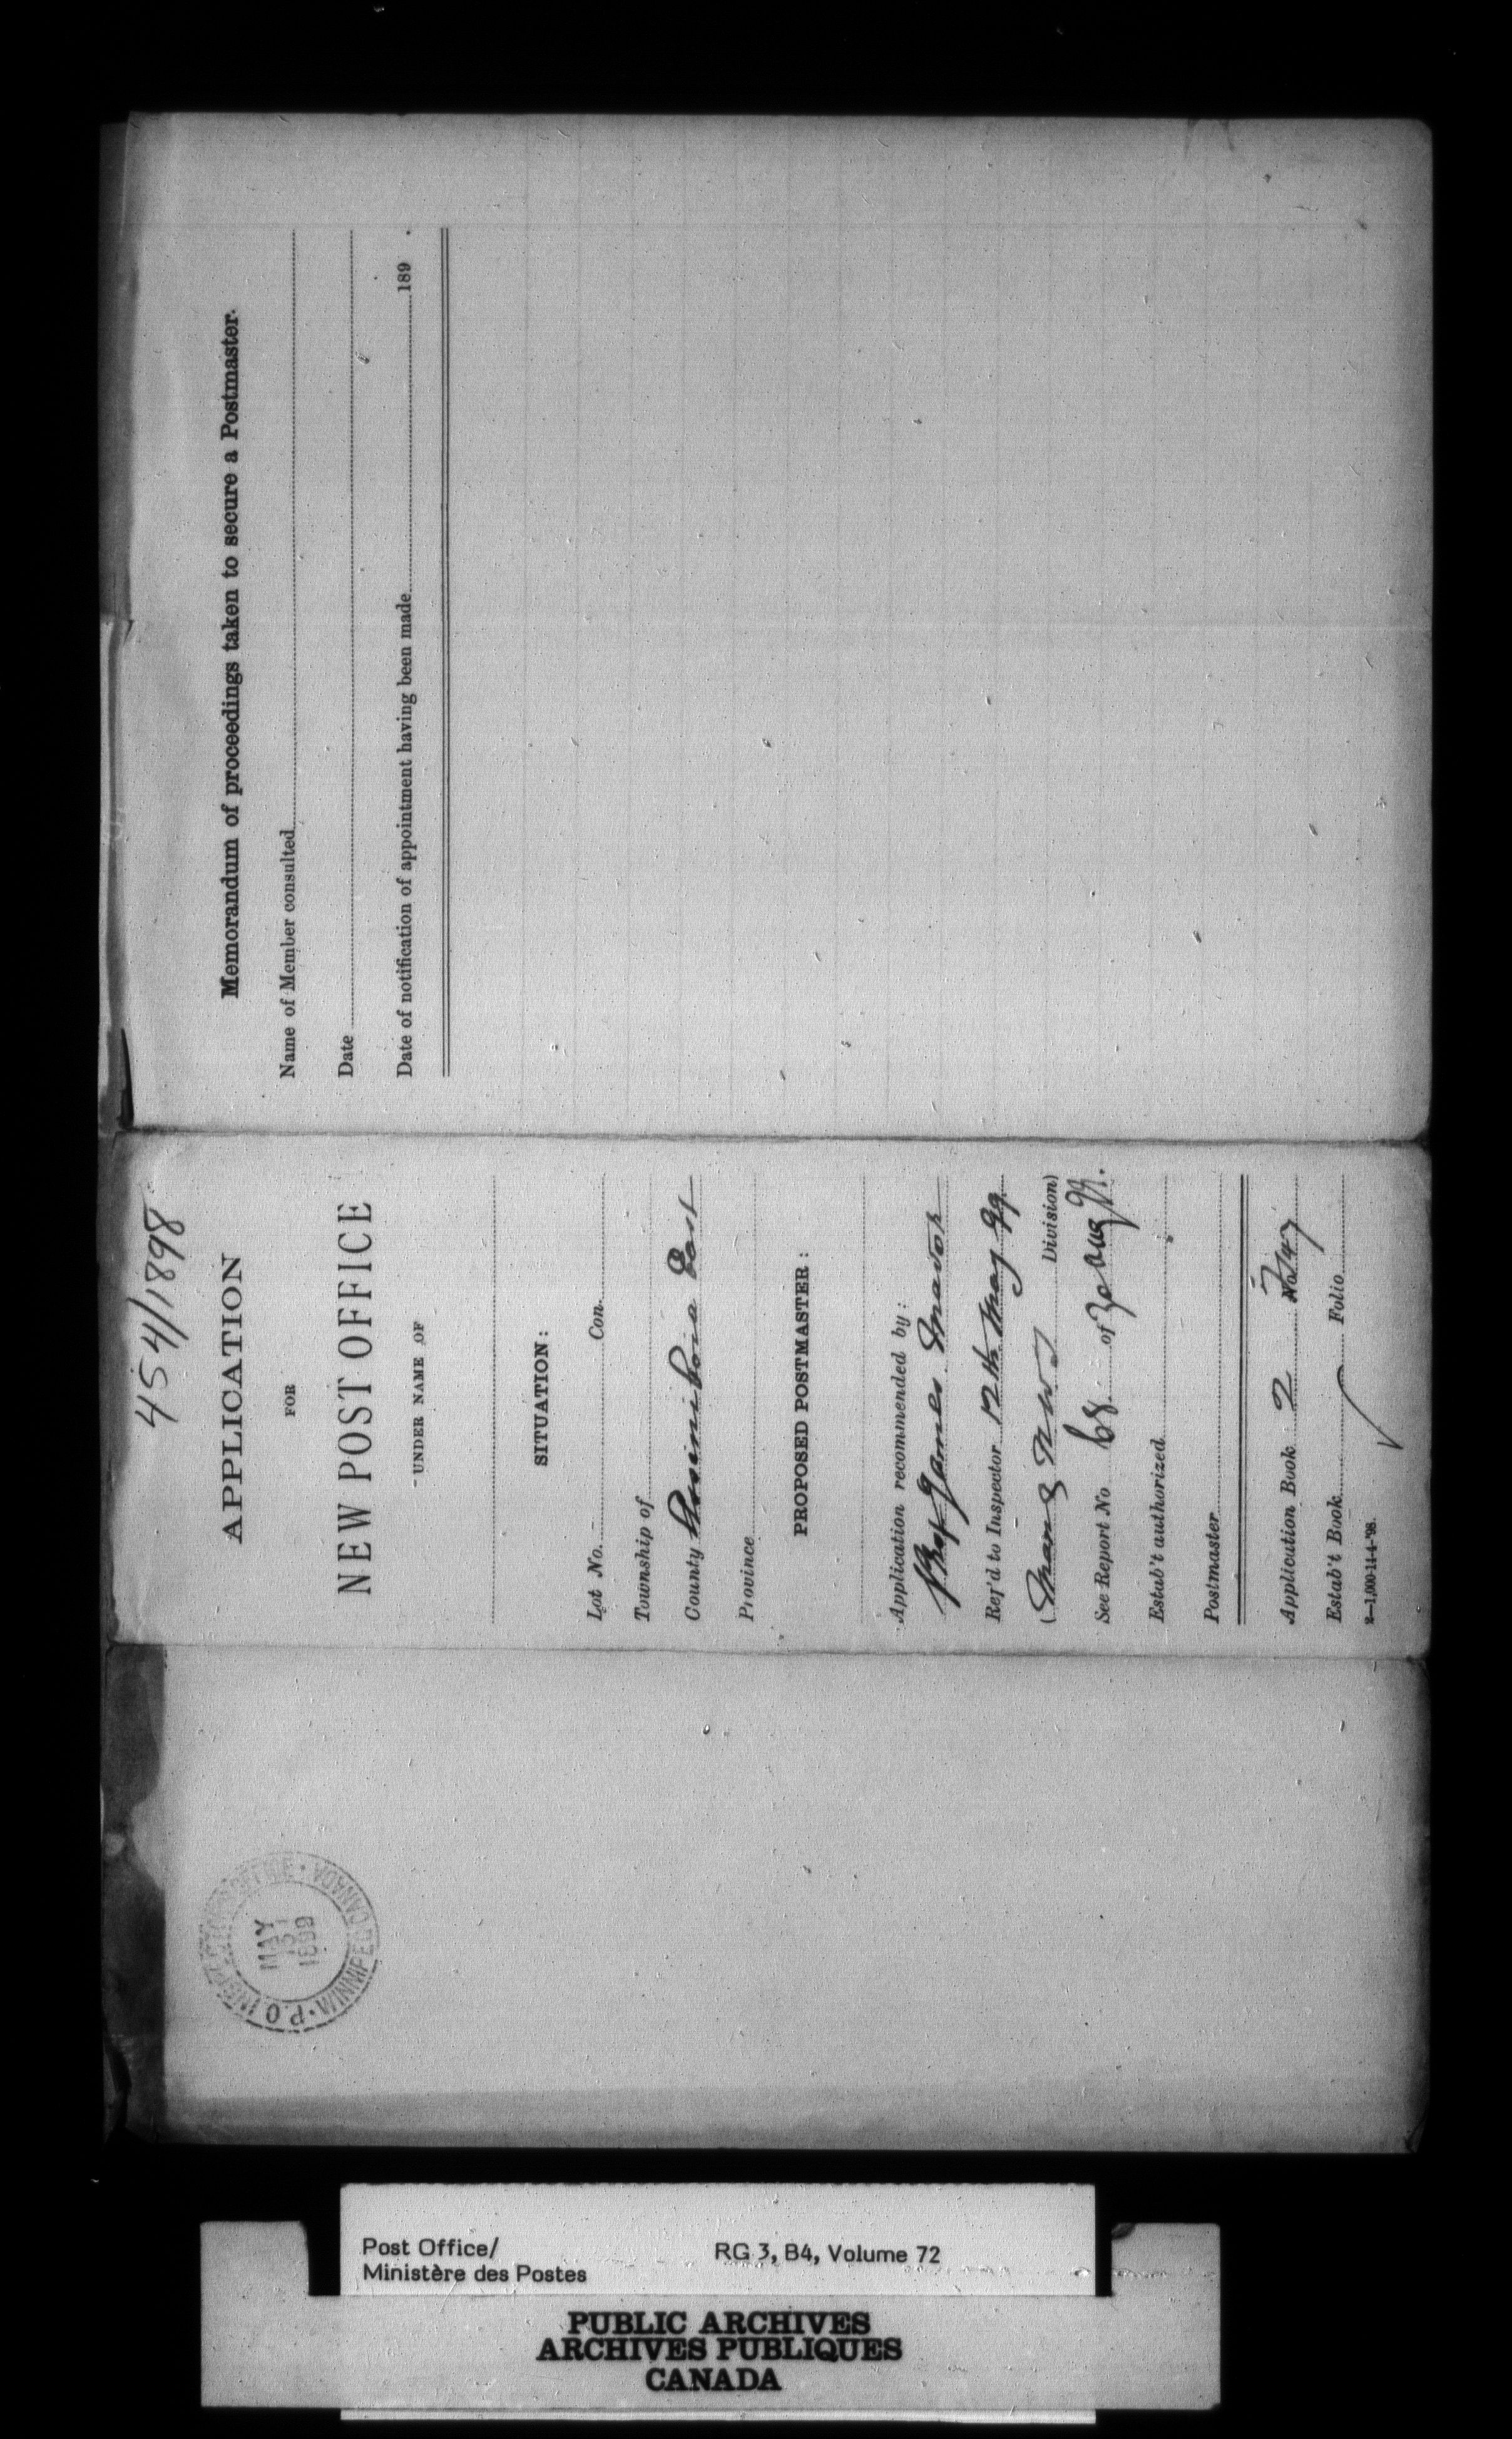 Memorandum of proceedings taken to secure a Postmaster.
Name of Member consulted
Date
Date of notification of appointment having been made 189 .
454/1898
APPLICATION
FOR
NEW POST OFFICE
UNDER NAME OF
SITUATION:
Lot No. Con.
Township of
County Assiniboia East
Province
PROPOSED POSTMASTER:
Application recommended by:
Prof James Mavor
Ref'd to Inspector 12th May 99
(Man & N W T Division)
See Report No. of 30 Aug 99.
Estab't authorized
Postmaster
Application Book 2 No. 747
Estab't Book Folio
2—1,000-11-4-'98.
P.O. INSPECTOR'S OFFICE · WINNIPEG, CANADA ·
MAY
1899
Post Office/
Ministère des Postes
RG 3, B4, Volume 72
PUBLIC ARCHIVES
ARCHIVES PUBLIQUES
CANADA